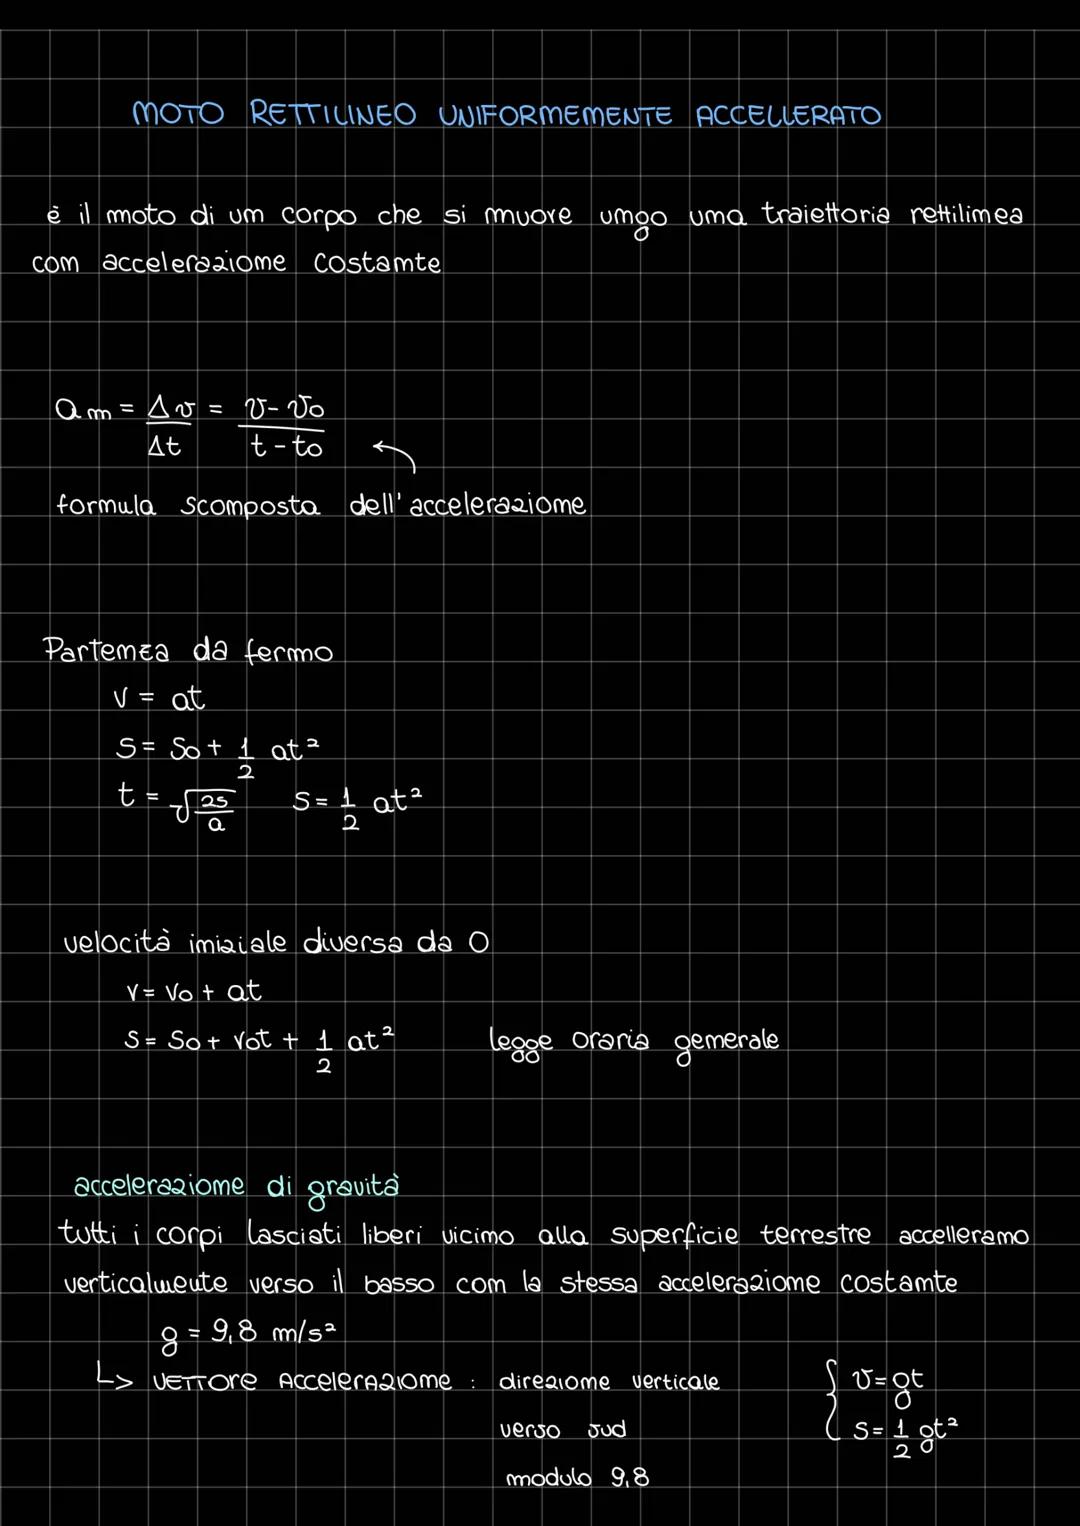 MOTO RETTILINEO UNIFORMEMENTE ACCELLERATO
è il moto di un corpo che si muove ungo una traiettoria rettilinea
con accelerazione costante
am = Δv/Δt = v-v₀/t-t₀
formula scomposta dell'accelerazione
Partenza da fermo
v = at
S = S₀ + 1/2 at²
t = √2s/a S = 1/2 at²
velocità iniziale diversa da 0
v = v₀ + at
S = S₀ + v₀t + 1/2 at² legge oraria generale
accelerazione di gravità
tutti i corpi lasciati liberi vicino alla superficie terrestre accellerano
verticalmente verso il basso con la stessa accelerazione costante
g = 9,8 m/s²
↳ VETTORE ACCELERAZIONE : direzione verticale { v = gt
verso sud S = 1/2 gt²
modulo 9,8